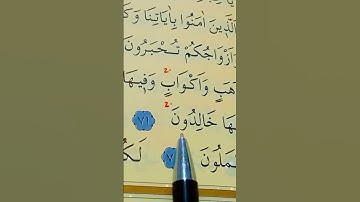 اَلَّذٖينَ اٰمَنُوا بِاٰيَاتِنَا وَكَ
وَاَزْوَاجُكُمْ تُحْبَرُونَ
هَبٍ وَاَكْوَابٍ وَفٖيهَا
2.
2.
هَا خَالِدُونَ ﴿٧١﴾
مَلُونَ
لَكُ